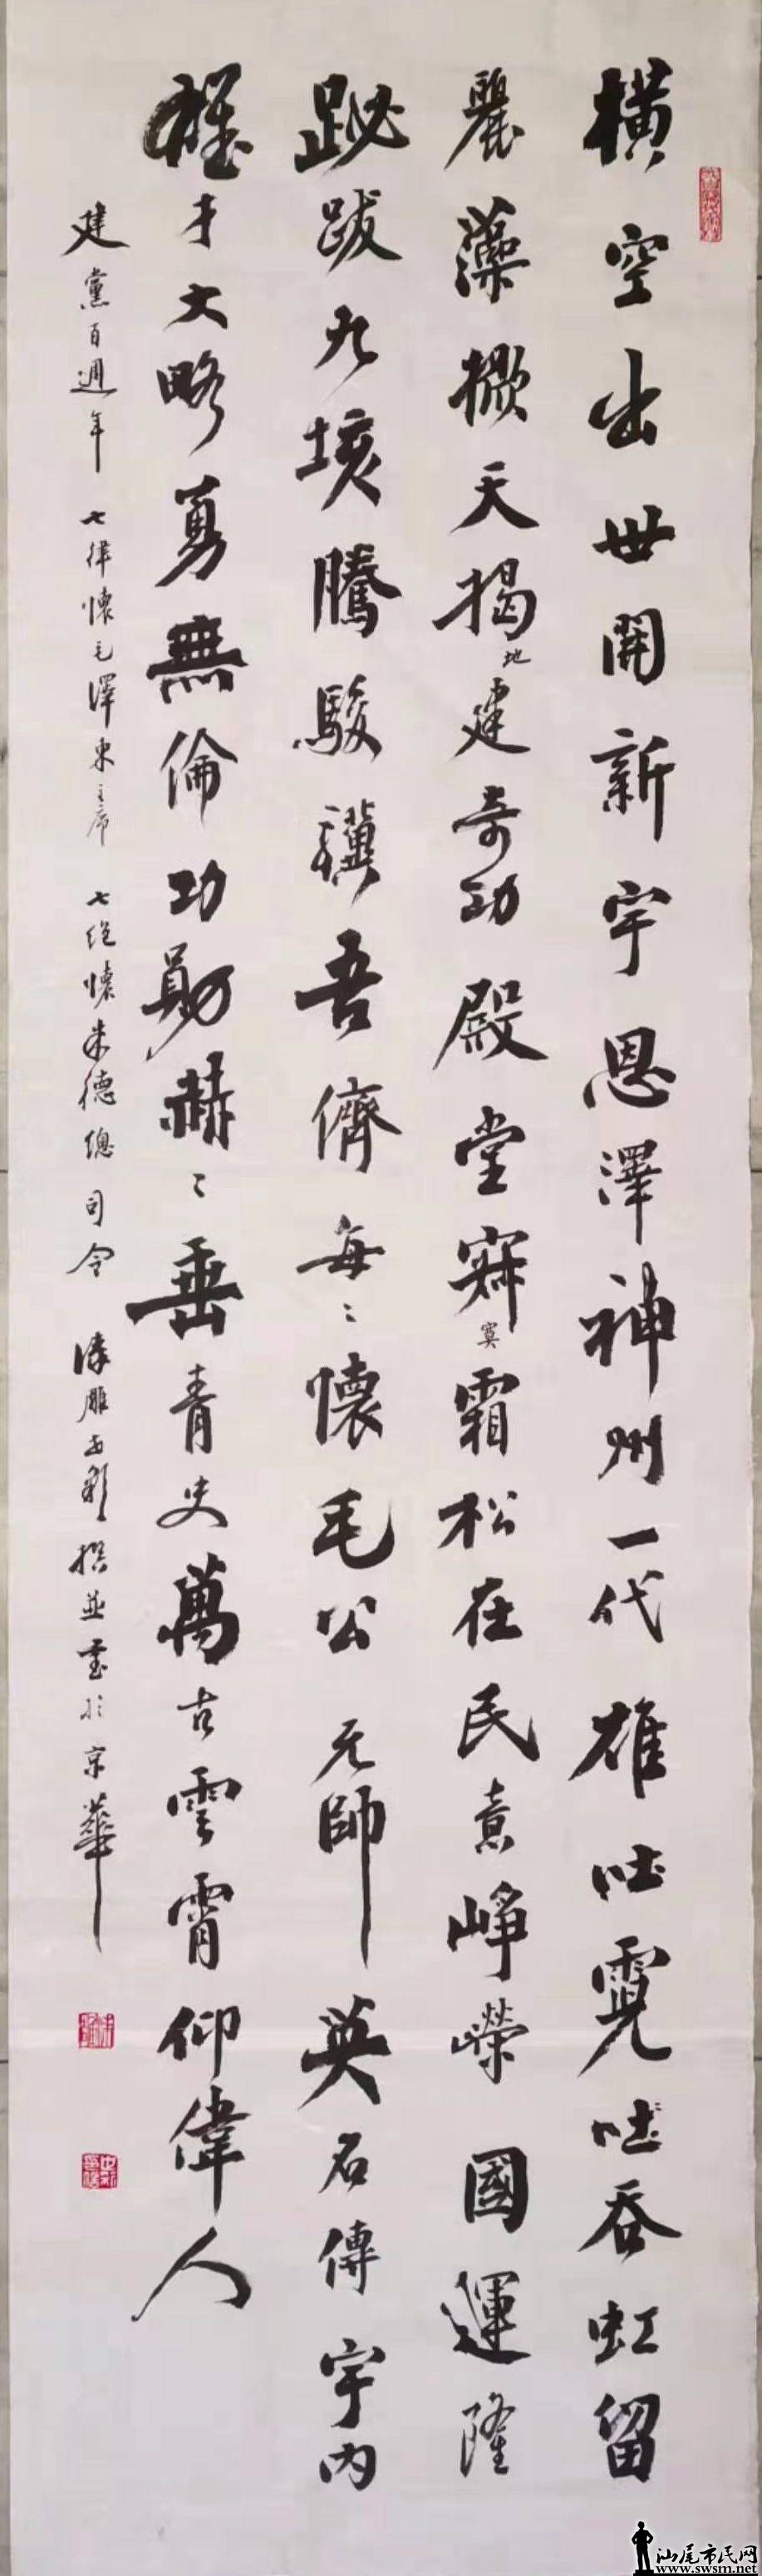 橫空出世開新宇恩澤神州一代雄吐霓吐吞虹留
麗藻掀天揭地建奇功殿堂寂寞霜松在民意崢嶸國運隆
跋九垓騰駿驥吾儕每々懷毛公元帥英名傳宇內
雄才大略勇無倫功勛赫々垂青史萬古雲霄仰偉人
建黨百週年 七律懷毛澤東主席 七絕懷朱德總司令 撰並書於京華
汕尾市民网
www.swsm.net